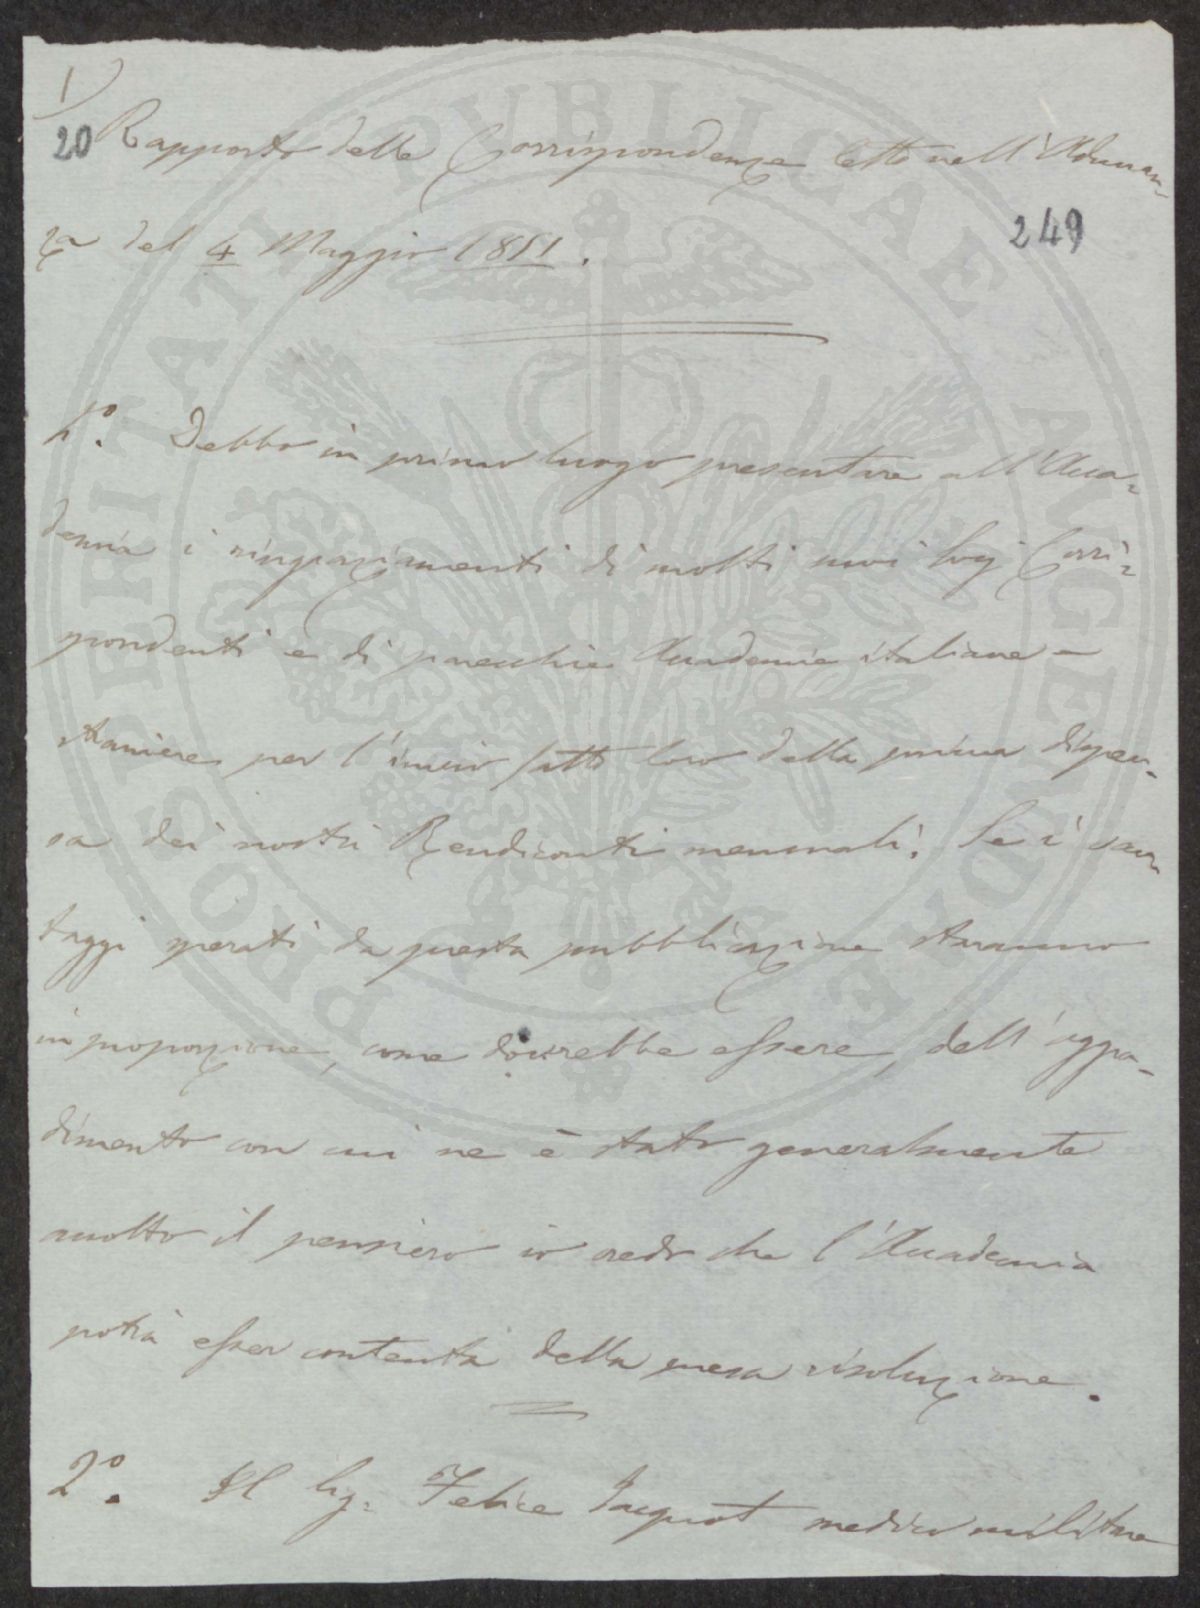 1)
20 Rapporto della Corrispondenza letto nell'Adunan-
249
za del 4 Maggio 1851.
1°. Debbo in primo luogo presentare all'Acca-
demia i ringraziamenti di molti suoi Socj Corri-
spondenti e di parecchie Accademie italiane e
straniere per l'invio fatto loro della prima dispen-
sa dei nostri Rendiconti mensuali. Se i van-
taggi sperati da questa pubblicazione staranno
in proporzione, come dovrebbe essere, dell'aggra-
dimento con cui ne è stato generalmente
accolto il pensiero io credo che l'Accademia
potrà esser contenta della presa risoluzione.
2°. Il Sig. Felice Jacquot medico militare
PROSPERITATI PVBLICAE AVGENDAE